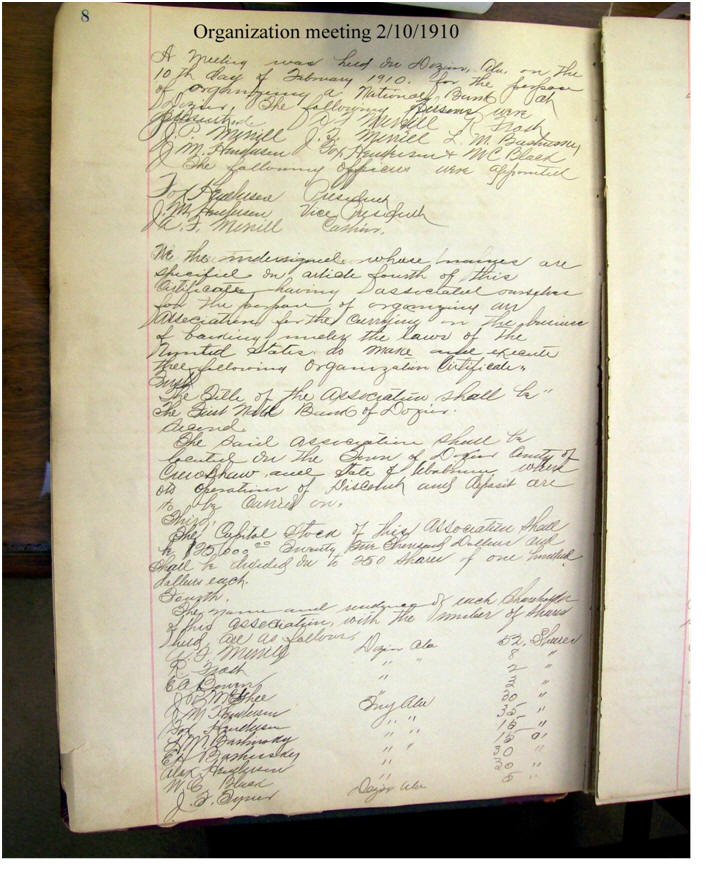 8
Organization meeting 2/10/1910
A Meeting was held in Dozier, Ala. on the
10th day of February 1910. for the purpose
of organizing a National Bank at
Dozier, The following Persons were
present. Merrill Nash
J. P. Merrill J. F. Merrill L. M. Bashinsky
J. M. Henderson Fox Henderson & W C Black
The following Officers were appointed
Fox Henderson President
J. M. Henderson Vice President
Merrill Cashier.
We the undersigned whose names are
specified in article fourth of this
Certificate having associated ourselves
for the purpose of organizing an
Association for the Carrying on the business
of banking under the laws of the
United States, do make and execute
the following Organization Certificate.
First
The Title of the Association shall be "
The First Natl Bank of Dozier.
Second.
The said association shall be
located in the Town of Dozier County of
Crenshaw and State of Alabama, where
its operations of Discount and deposit are
to be Carried on.
Third,
The Capital Stock of this Association shall
be $25,000 00 Twenty Five Thousand Dollars and
shall be divided in to 250 shares of one hundred
dollars each.
Fourth.
The name and residence of each Shareholder
of this association, with the number of shares
held are as follows,
Merrill Dozier Ala 52. Shares
R. Nash " " 8 "
E A Bowen " 2 "
J. D. McGhee 2 "
J M Henderson Troy Ala 30 "
Fox Henderson " " 35 "
L. M. Bashinsky " " 15 "
E. Bashinsky " " 15 "
Alex Henderson " 30
W. C. Black " 20 "
J. F. Dozier Ala 5 "